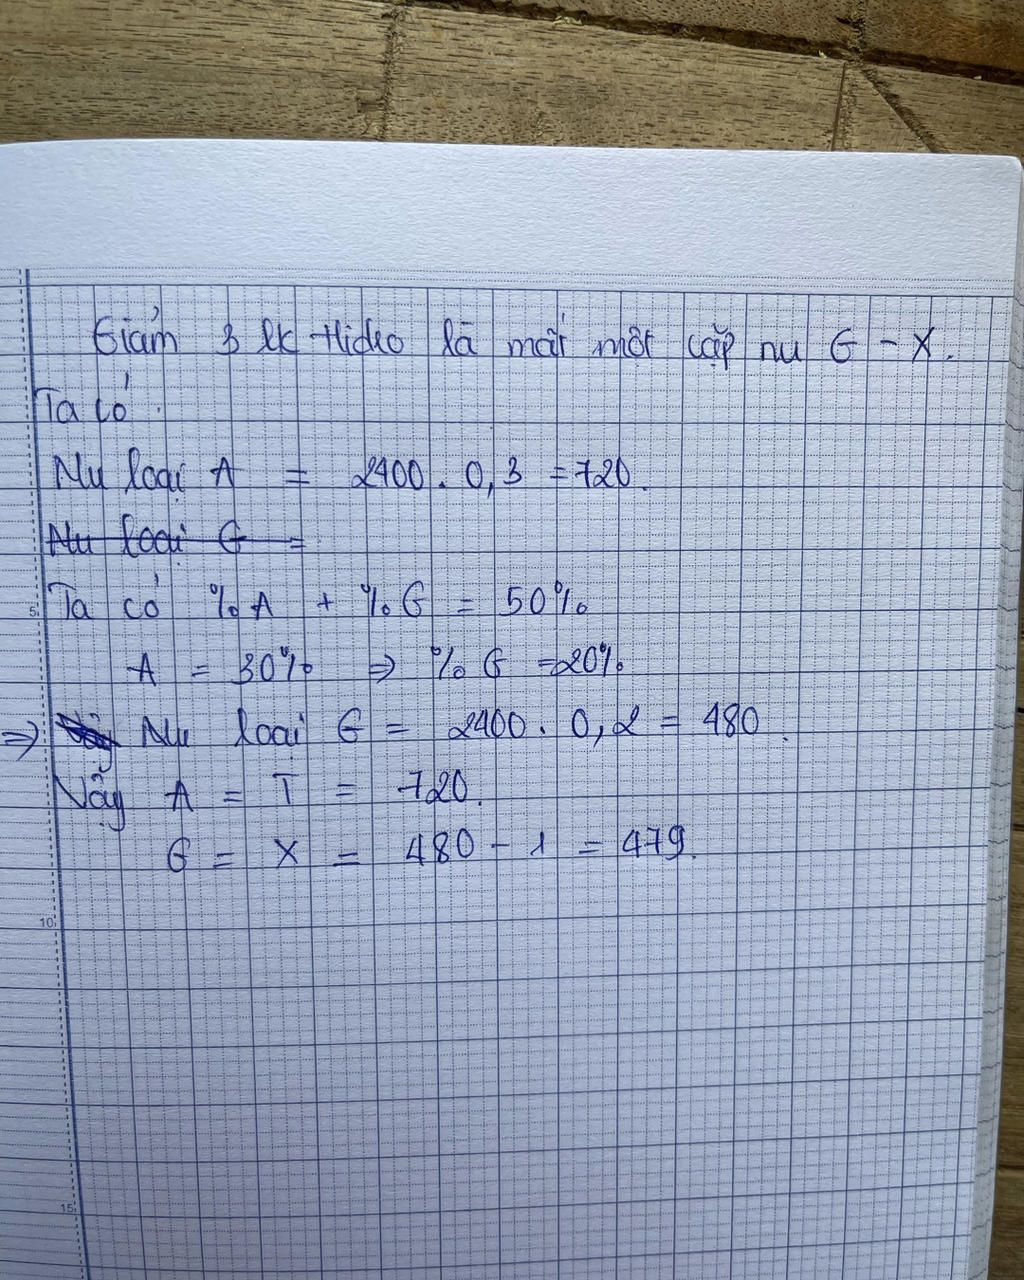 Giảm 3 lk Hidro là mất một cặp nu G - X.
Ta có:
Nu loại A = 2400. 0,3 = 720.
Nu loại G =
5 Ta có %A + %G = 50%
A = 30% => %G = 20%
=> Nu loại G = 2400. 0,2 = 480.
Vậy A = T = 720.
G = X = 480 - 1 = 479.
10
15